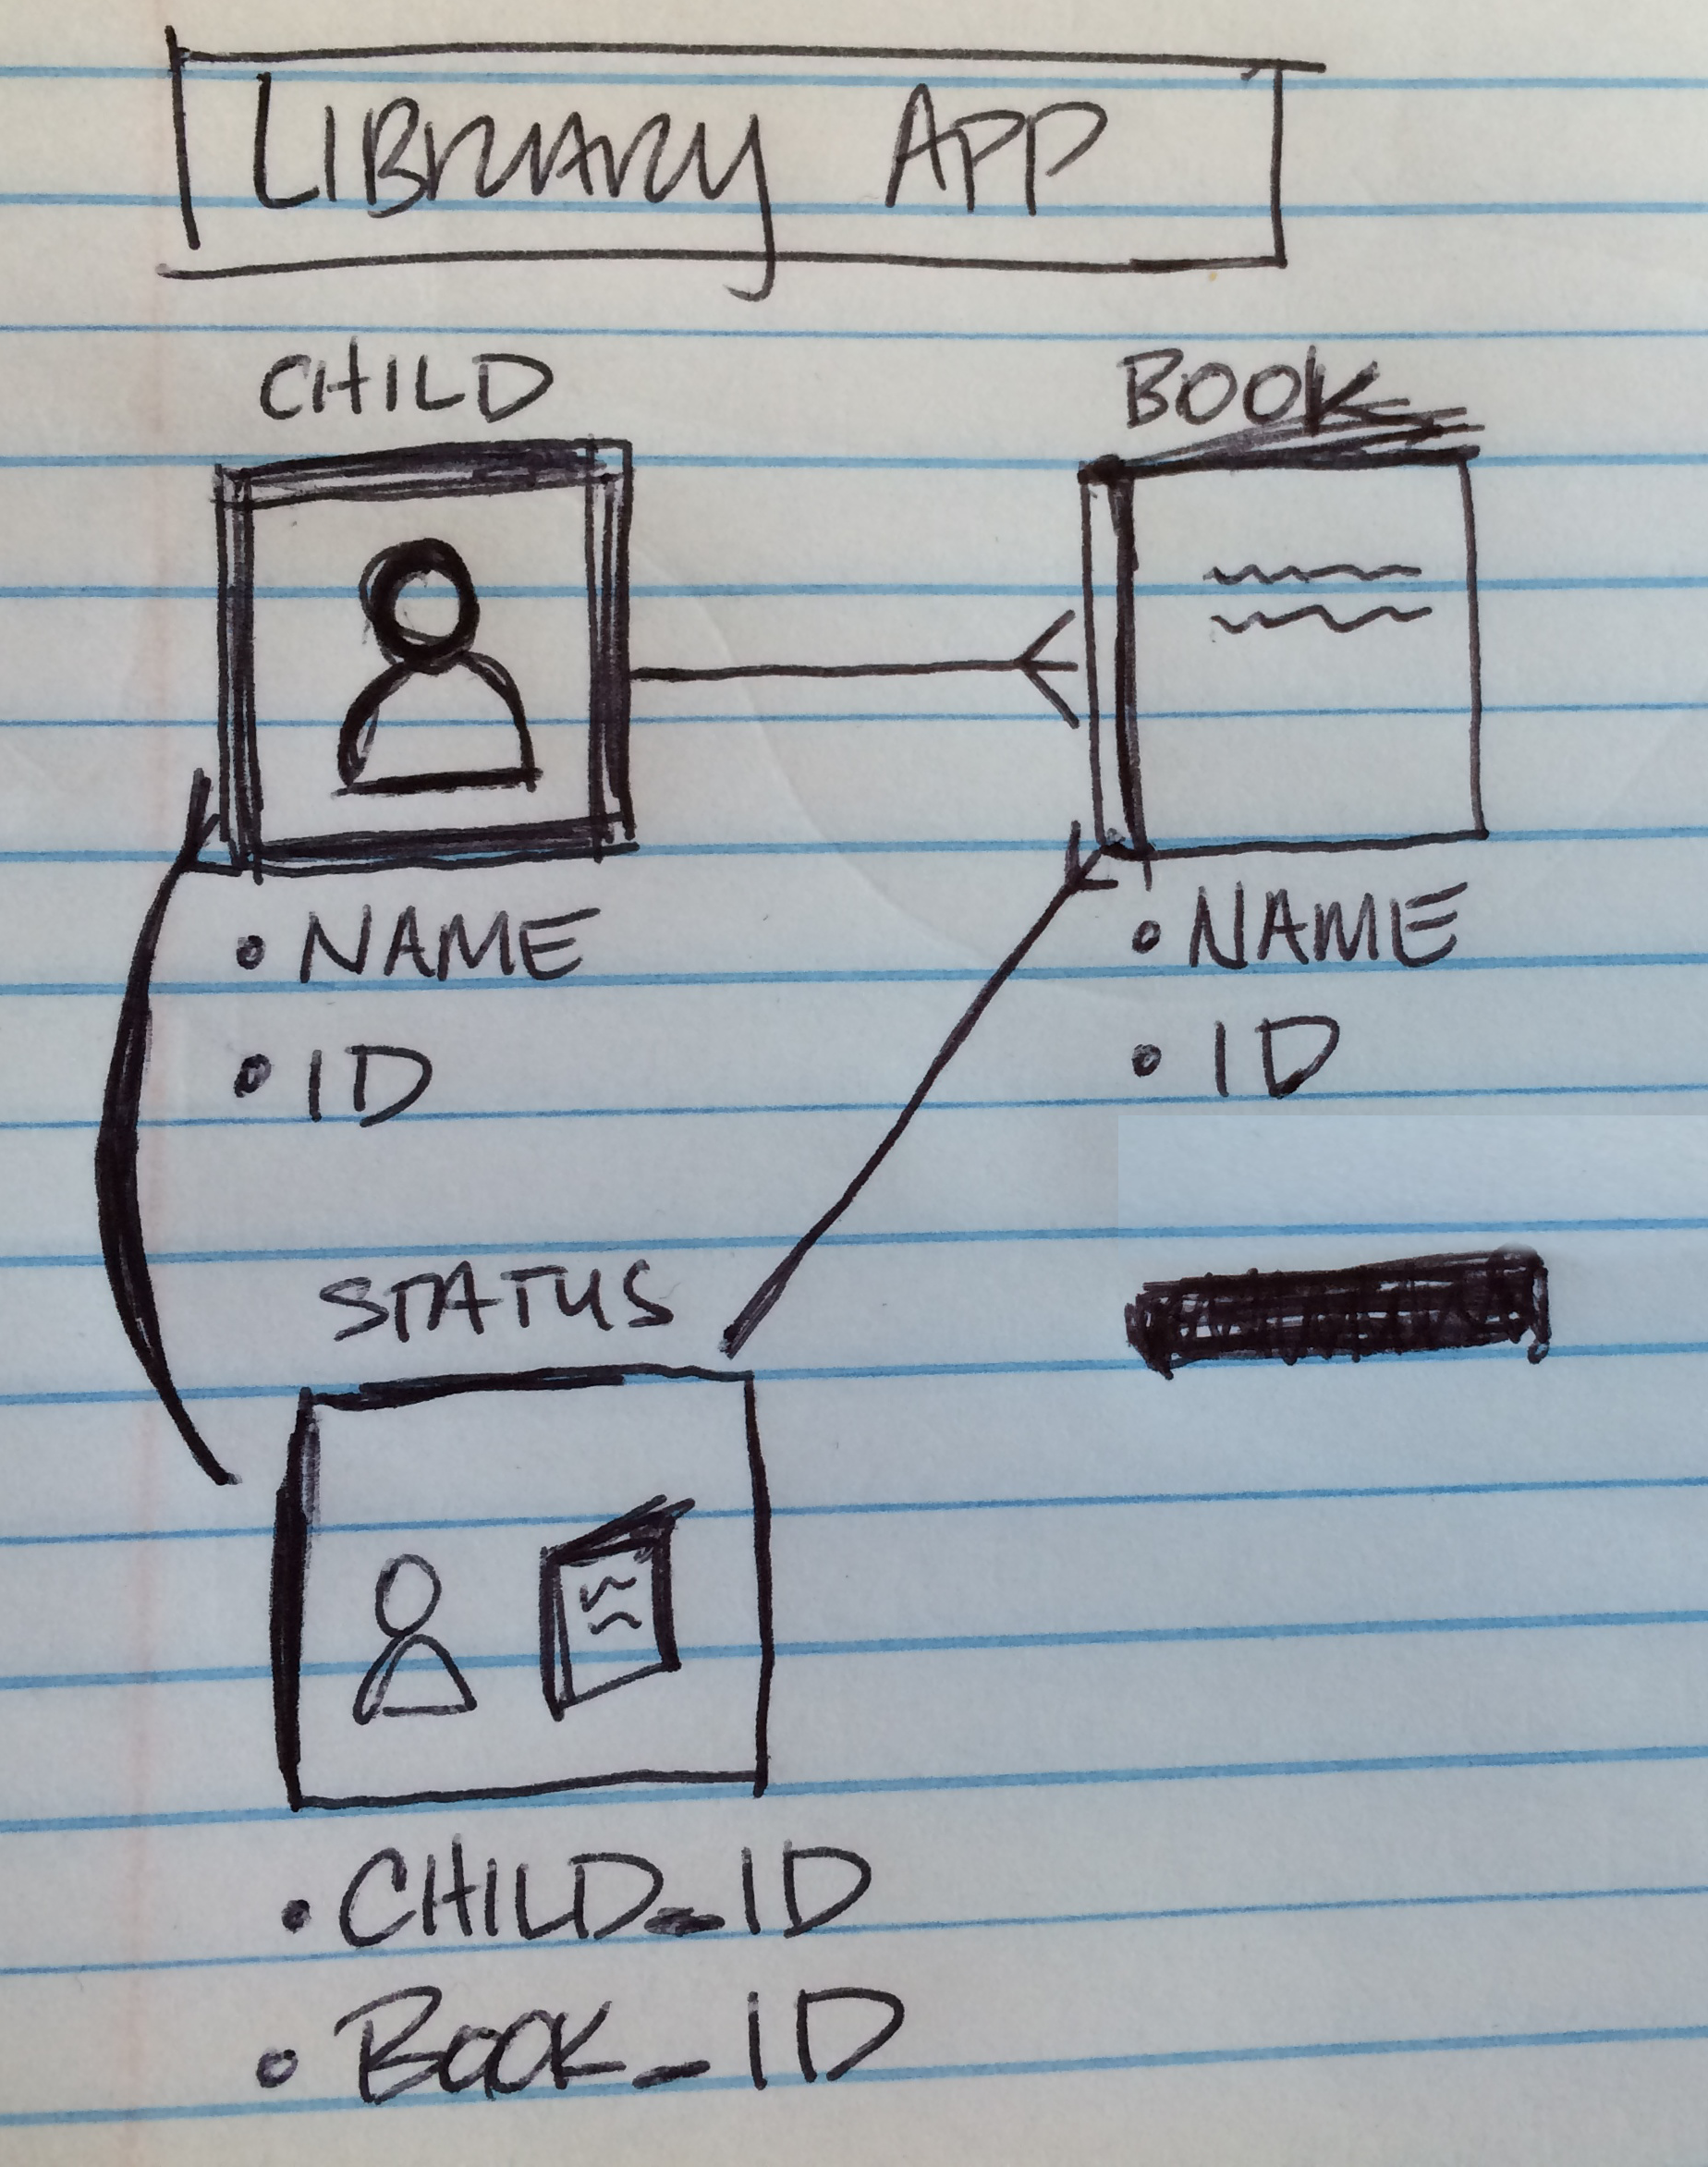 LIBRARY APP
CHILD
BOOK
• NAME
• ID
• NAME
• ID
STATUS
• CHILD_ID
• BOOK_ID